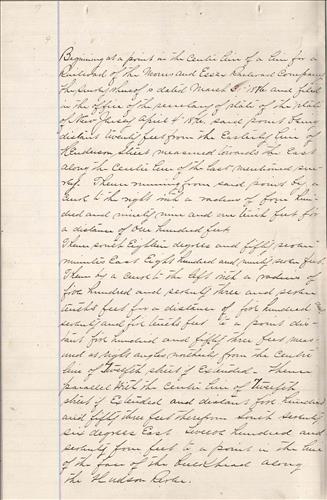 Beginning at a point in the Centre line of a line for a
Railroad of the Morris and Essex Railroad Company
the Survey whereof is dated March 31st 1860 and filed
in the office of the secretary of state of the state
of New Jersey April 4th 1860, said point being
distant twenty feet from the Easterly line of
Henderson Street measured towards the East
along the Centre line of the last mentioned sur-
vey. Thence running from said point by a
curve to the right with a radius of four hun-
dred and ninety nine and one tenth feet for
a distance of one hundred feet
Thence south Eighteen degrees and fifty seven
minutes East Eight hundred and ninety seven feet
Thence by a curve to the left with a radius of
five hundred and seventy three and seven
tenths feet for a distance of five hundred
seventy and five tenths feet to a point dis-
tant five hundred and fifty three feet meas-
ured at right angles northerly from the Centre
line of Twelfth street if Extended - Thence
parallel with the Centre line of Twelfth
street if Extended and distant five hundred
and fifty three feet therefrom South seventy
six degrees East Twelve hundred and
seventy four feet to a point in the line
of the face of the bulkhead along
the Hudson River.